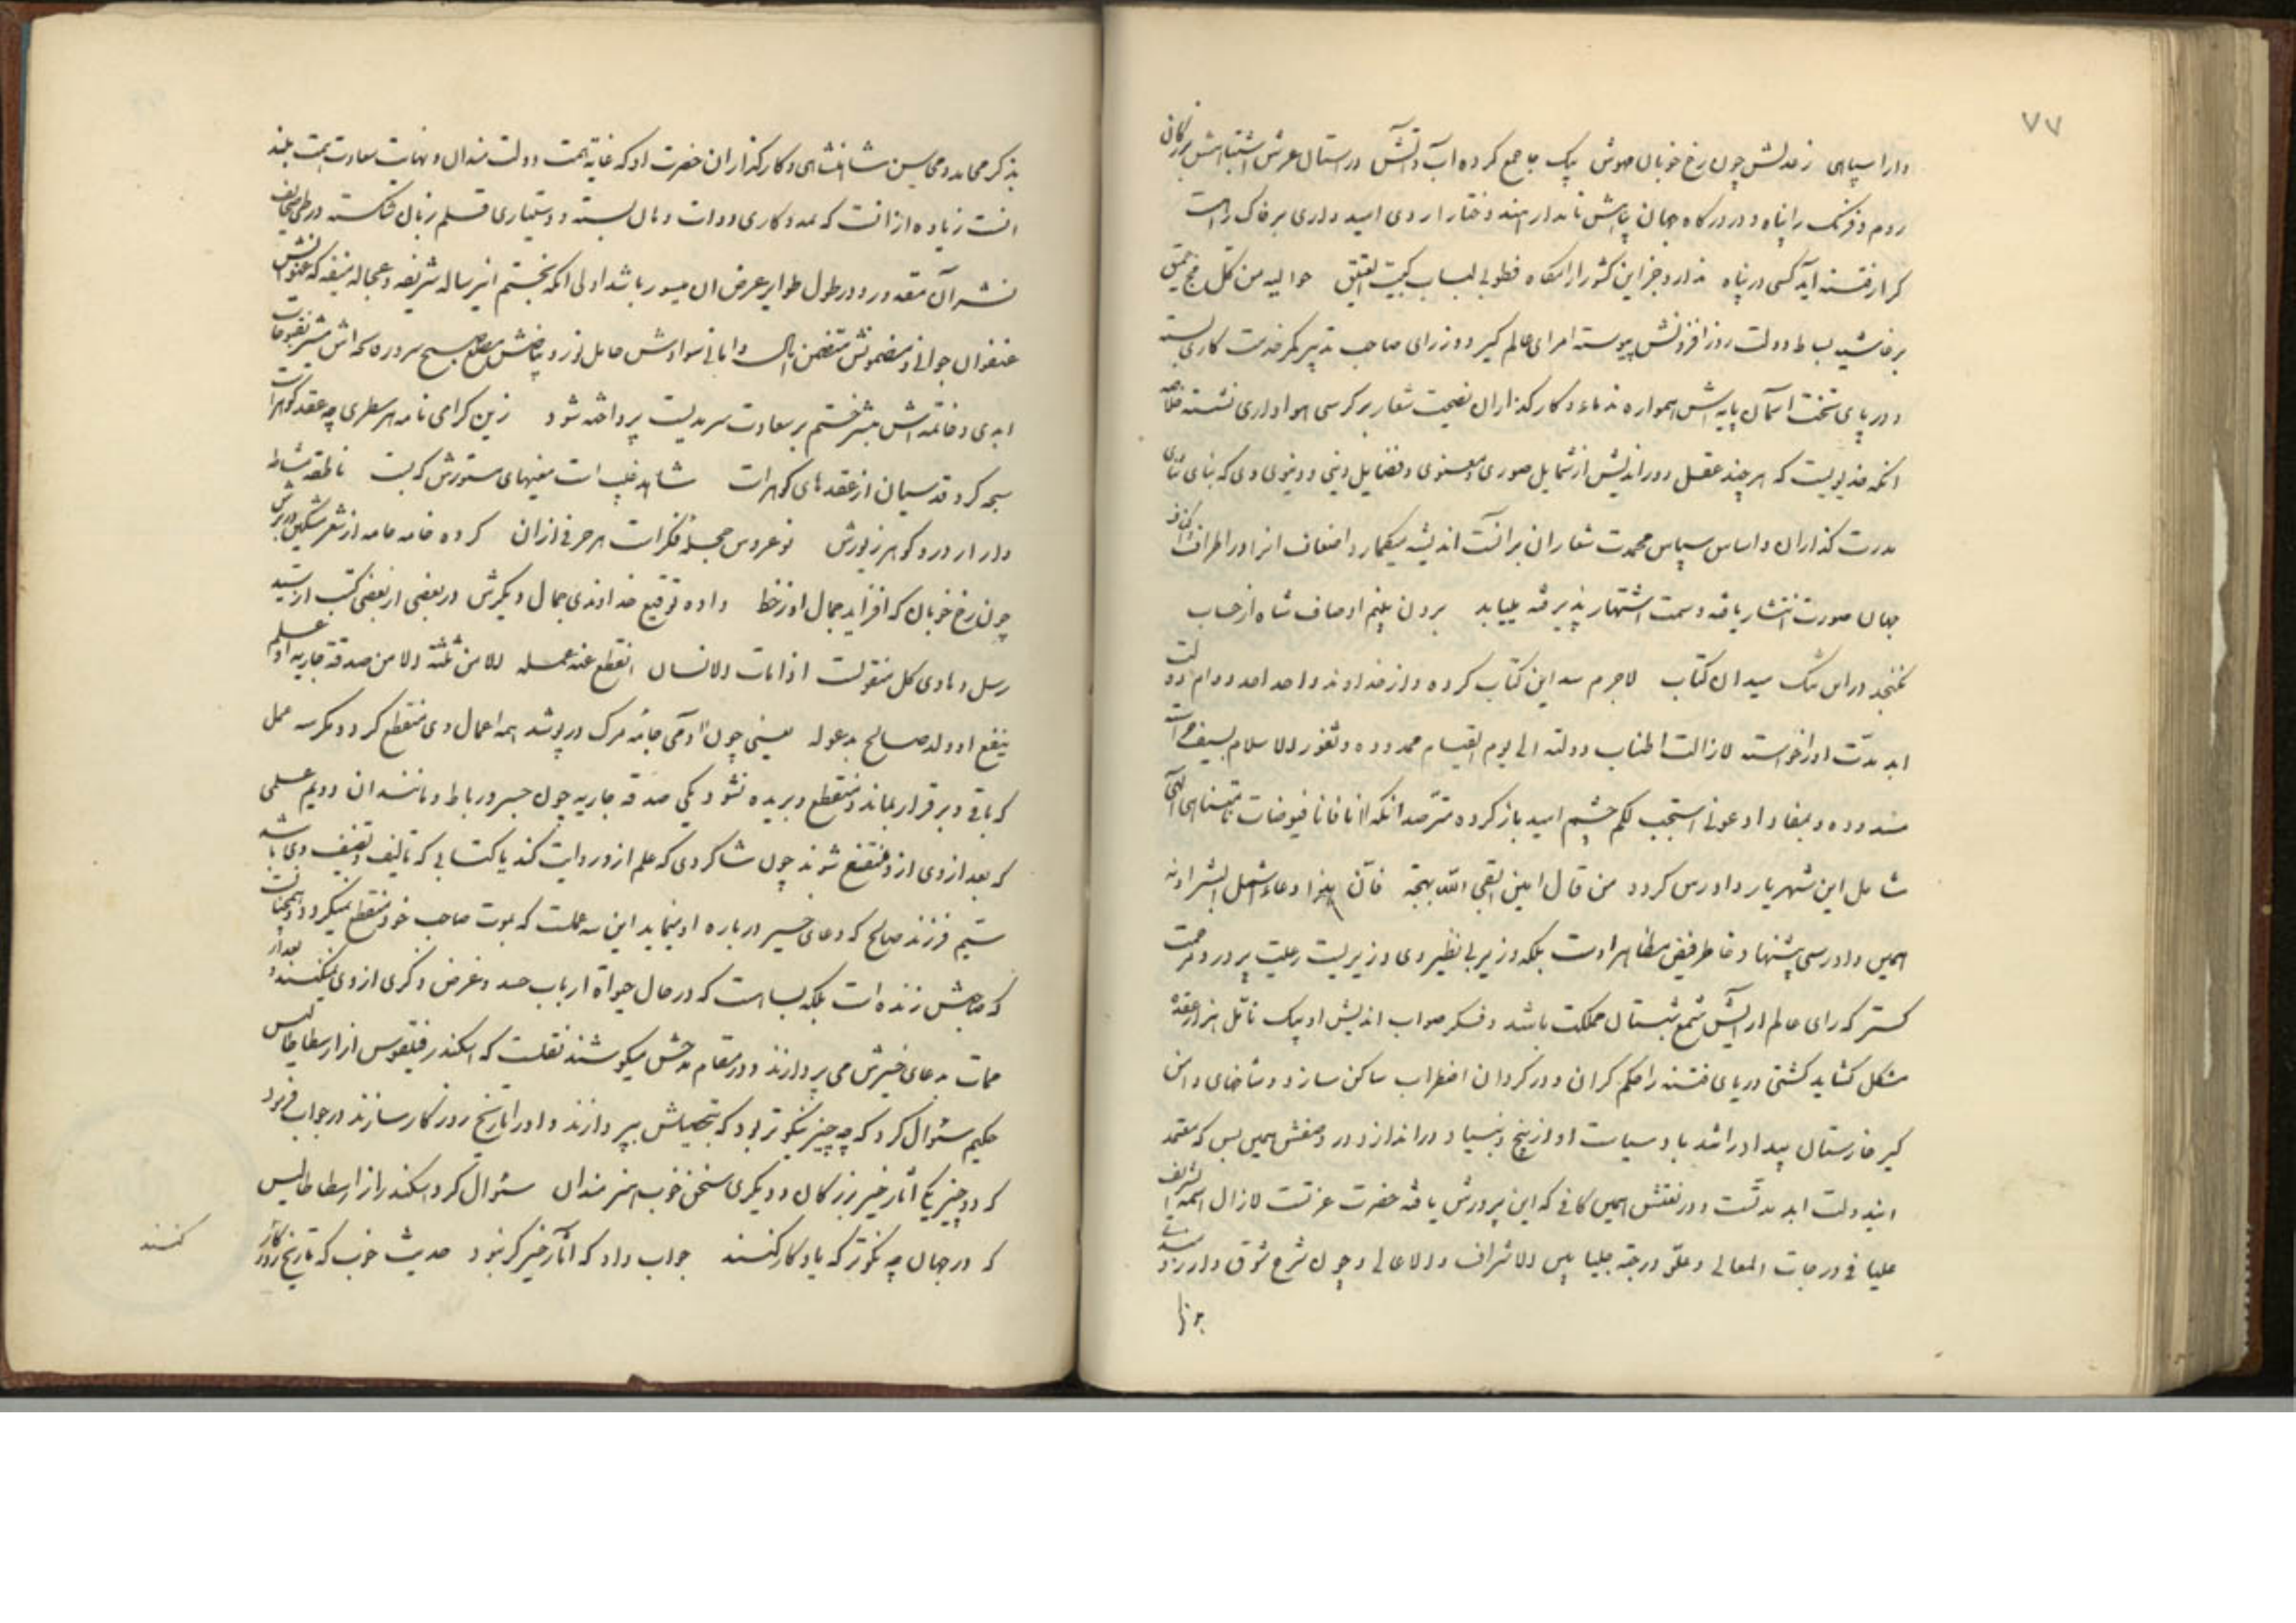 ۷۷
دارا سپاهی ز عدلش چون رخ خوبان مهوش یک جا جمع کرده آب و آتش در استان عرش اشتباهش بزرکان
روم و فرنک را پناه و در درکاه جهان پناهش تاجدار هند و ختا را روی امیدواری بر خاک راهست
کر از فتنه آید کسی در پناه ندارد جز این کشور آرامکاه فطوبی لباب کبیت العتیق حوالیه من کل فج عمیق
بر حاشیه بساط دولت روز افزونش پیوسته امرای عالم کیر و وزرای صاحب تدبیر کمر خدمت کاری بسته
و در پای تخت آسمان پایه اش همواره ندماء و کارکذاران نصیحت شعار بر کرسی هواداری نشسته خلاصه
انکه مدیدیست که هر چند عقل دوراندیش از شمایل صوری و معنوی و فضایل دینی و دنیوی وی که بنای ثنای
مدحت کذاران و اساس سپاس محمدت شعاران بر آنست اندیشه میکمارد اضعاف انرا در اطراف و اکناف
جهان صورت انتشار یافته و سمت اشتهار پذیرفته مییابد برون بینم اوصاف شاه از حساب
نکنجد در این تنک میدان کتاب لاجرم سد این کتاب کرده و از خداوند واحد احد دوام دولت
ابد مدت او را خواسته لازالت اطناب دولته الی یوم القیام ممدوده و ثغور الاسلام بسیف
مسدوده و بمفاد ادعونی استجب لکم چشم امید باز کرده مترصد انکه انا فانا فیوضات نامتناهی الهی
شامل این شهریار دادرس کردد من قال امین ابقی الله بهجته فان هذا دعاء اشمل البشرا و نه
همین دادرسی پیشنهاد خاطر فیض مظاهر اوست بلکه وزیر بی نظیر وی وزیریست رعیت پرور و مرحمت
کستر که رای عالم آرایش شمع شبستان مملکت باشد و فکر صواب اندیش او بیک تامل هزار عقده
مشکل کشاید کشتی دریای فتنه را حکم کران و در کردان اضطراب ساکن سازد و شاخهای دامن
کیر خارستان بیداد را تندباد سیاست او از بیخ و بنیاد در اندازد و در وصفش همین بس که معتمد
این دولت ابد مدتست و در نعتش همین کافی که این پرورش یافته حضرت عزتست لازال اسمه الشریف
علیا فی درجات المعالی و علو درجته جلیا بین الاشراف و الاعالی و چون شرح شوق و ارزومندی
بذکر محامد و محاسن شاهنشاهی و کارکذاران حضرت او که غایة همت دولت مندان و نهایت سعادت همت بلند
انست زیاده از انست که بمددکاری دوات دهان بسته و دستیاری قلم زبان شکسته در طی صحایف
نشر آن مقدور و در طول طوامیر عرض ان میسور باشد اولی انکه بختم این رساله شریفه و عجاله منیفه که عنوانش
عنفوان جوانی و مضمونش متضمن امال و امانی سوادش حامل نور و بیاضش مطلع صبح سرور فاتحه اش مبشر بفتوحات
ابدی و خاتمه اش مبشر ختم بر سعادت سرمدیست پرداخته شود زین کرامی نامه هر سطری چه عقد کوهر است
سبحه کرد قدسیان از عقدهای کوهر است شاهد غیب است معنیهای مستورش که بست ناطقه مشاطه
وار از در و کوهر زیورش نوعروس حجله فکر است هر حرفی از ان کرده خامه جامه از شعر مشکین در برش
چون رخ خوبان که افزاید جمال او ز خط داده توقیع خداوندی جمال دیکرش در بعضی از بعضی کتب از سید
رسل و هادی کل منقولست اذا مات الانسان انقطع عنه عمله الا من ثلثه الا من صدقة جاریه او علم
ینتفع او ولد صالح یدعو له یعنی چون آدمی جامه مرک در پوشد همه اعمال وی منقطع کردد مکر سه عمل
که باقی و برقرار بماند و منقطع و بریده نشود یکی صدقه جاریه چون جسر و رباط و مانند ان دویم علمی
که بعد از وی از و منتفع شوند چون شاکردی که علم از و روایت کند یا کتابی که تالیف و تصنیف وی باشد
سیم فرزند صالح که دعای خیر در باره او نماید این سه عملست که بموت صاحب خود منقطع نمیکردد و همچنانست
که صاحبش زنده است بلکه بسا هست که در حال حیواة ارباب حسد و غرض ذکری از وی نمیکنند و بعد از
ممات بدعای خیرش می پردازند و در مقام مدحش میکوشند نقلست که اسکندر فیلقوس از ارسطاطالیس
حکیم سئوال کرد که چه چیز نیکوتر بود که بتحصیلش بپردازند و او را تاریخ روزکار سازند در جواب فرمود
که دو چیز یکی آثار خیر بزرکان و دیکری سخن خوب هنرمندان سئوال کرد اسکندر از ارسطاطالیس
که در جهان چه نکوتر که یادکار کنند جواب داد که آثار خیر کر نبود حدیث خوب که تاریخ روزکار
کنند